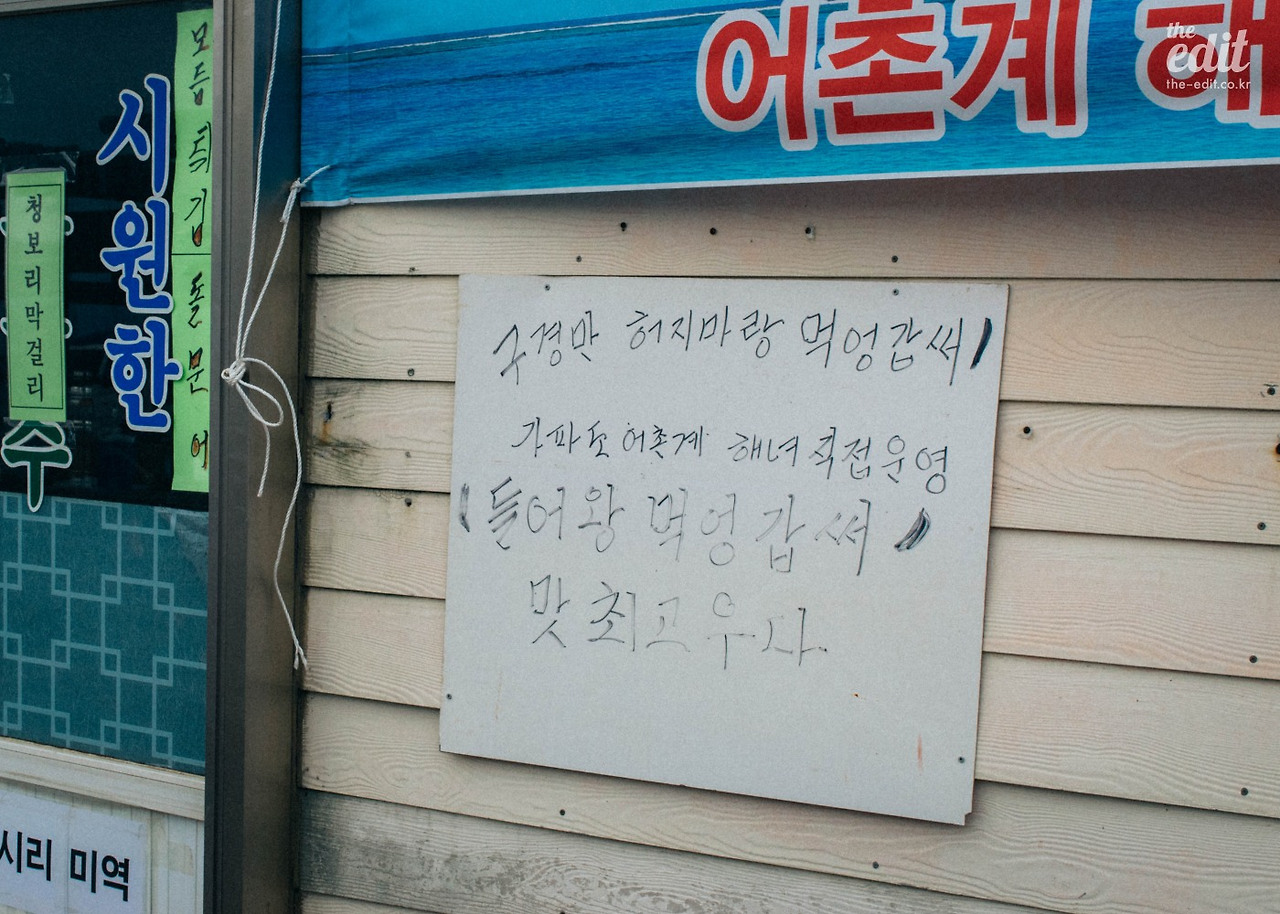 어촌계 해
the edit
the-edit.co.kr
모듬튀김
돌문어
시원한
청보리막걸리
수
구경만 허지마랑 먹엉갑써
가파도 어촌계 해녀 직접운영
들어왕 먹엉갑써
맛 최고우사.
시리 미역